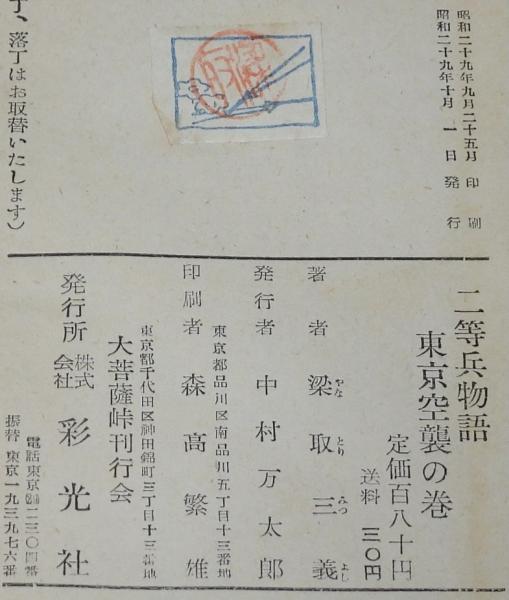 昭和二十九年九月二十五月 印刷
昭和二十九年十月 一日 発行
丁、落丁はお取替いたします)
二等兵物語
東京空襲の巻
定価百八十円
送料 三〇円
著者 梁取三義
やな とり みつ よし
発行者 中村万太郎
東京都品川区南品川五丁目十三番地
印刷者 森高繁雄
東京都千代田区神田錦町三丁目十三番地
大菩薩峠刊行会
発行所 株式会社 彩光社
電話東京 二三〇四番
振替 東京一九三九七六番